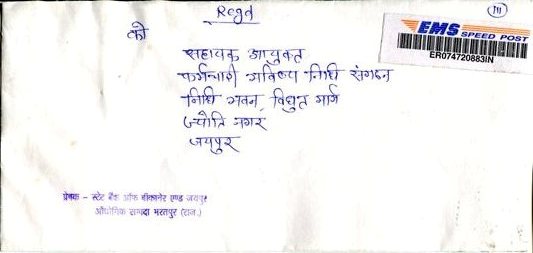 Regd
111
को
EMS SPEED POST
ER074720883IN
सहायक आयुक्त
कर्मचारी भविष्य निधि संगठन
निधि भवन, विद्युत मार्ग
ज्योति नगर
जयपुर
प्रेषक – स्टेट बैंक ऑफ बीकानेर एण्ड जयपुर
औद्योगिक सम्पदा भरतपुर (राज.)